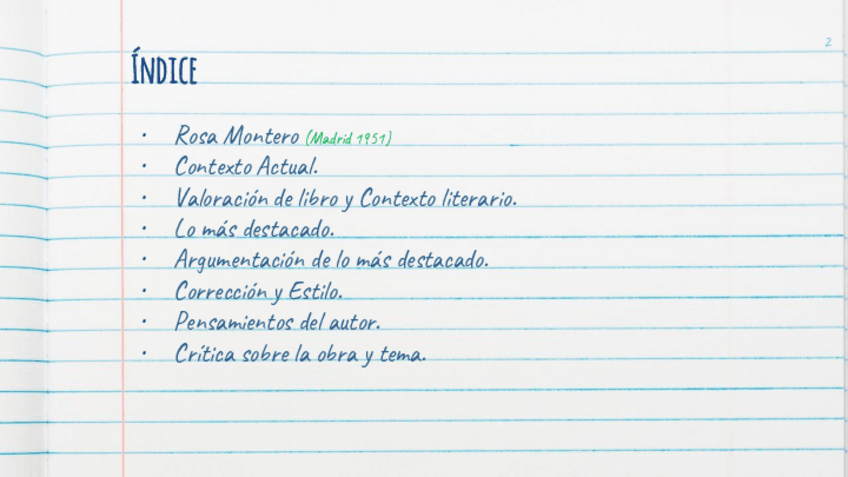 2
ÍNDICE
• Rosa Montero (Madrid 1951)
• Contexto Actual.
• Valoración de libro y Contexto literario.
• Lo más destacado.
• Argumentación de lo más destacado.
• Corrección y Estilo.
• Pensamientos del autor.
• Crítica sobre la obra y tema.